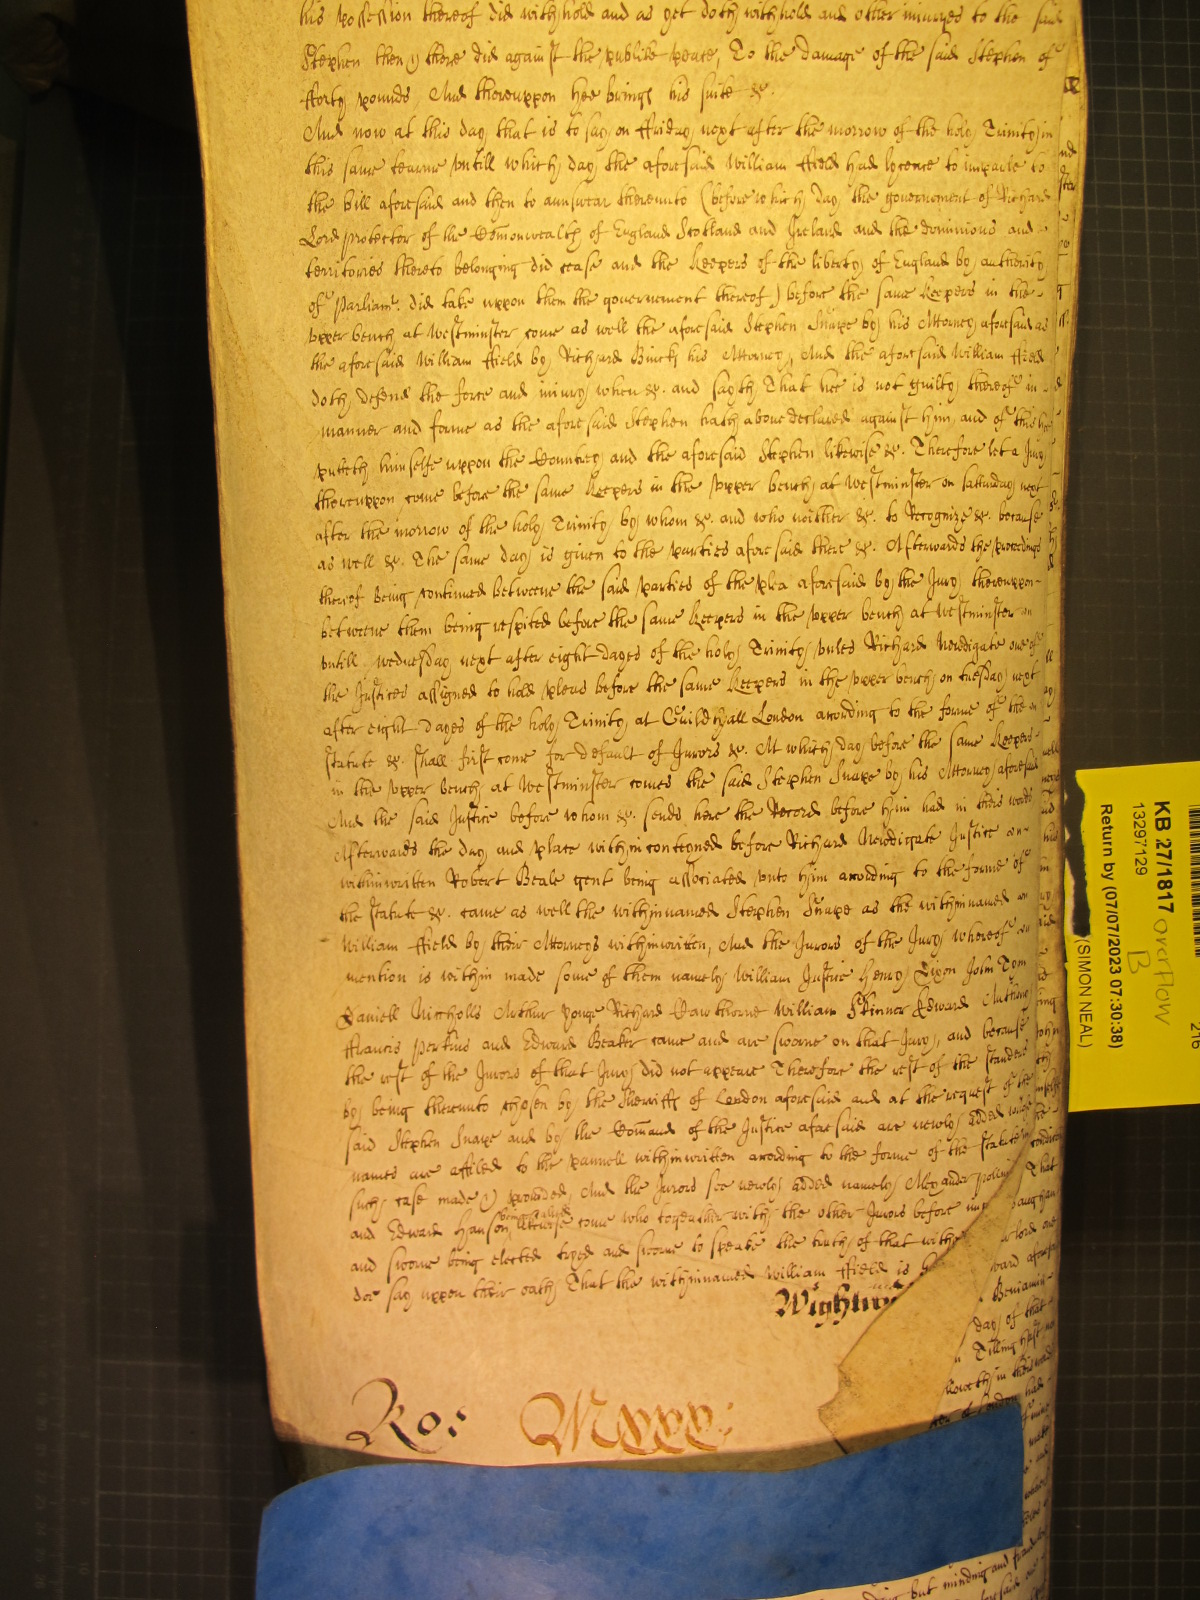 his possession thereof did withhold and as yet doth withhold and other iniuryes to the said
Stephen then & there did against the publike peace, To the damage of the said Stephen of
fforty pounds, And thereuppon hee brings his suite &c.
And now at this day that is to say on ffriday next after the morrow of the holy Trinity in
this same tearme vntill which day the aforesaid William ffeild had lycence to imparle to
the bill aforesaid and then to aunswear thereunto (before which day the governement of Richard
Lord protector of the Comonwealth of England Scotland and Ireland and the dominions and
territories thereto belonging did cease and the Keepers of the liberty of England by authority
of Parliamt. did take uppon them the governement thereof) before the same Keepers in the
vpper bench at Westminster come as well the aforesaid Stephen Snape by his Attorney aforesaid as
the aforesaid William ffeild by Richard Binck his Attorney, And the aforesaid William ffeild
doth defend the force and iniury when &c. and sayth That hee is not guilty thereof in
manner and forme as the aforesaid Stephen hath above declared against him, and of this hee
putteth himselfe uppon the Countrey and the aforesaid Stephen likewise &c. Therefore let a Jury
thereuppon come before the same Keepers in the vpper bench at Westminster on Satturday next
after the morrow of the holy Trinity by whom &c. and who neither &c. to Recognize &c. because
as well &c. The same day is given to the parties aforesaid there &c. Afterwards the proceedings
thereof being continued betweene the said parties of the plea aforesaid by the Jury thereuppon
betweene them being respited before the same Keepers in the vpper bench at Westminster
vntill wednesday next after eight dayes of the holy Trinity, vnles Richard Newdigate one of
the Justices assigned to hold pleas before the same Keepers in the vpper bench, on tuesday next
after eight dayes of the holy Trinity at Guildhall London according to the forme of the
statute &c. shall first come for default of Jurors &c. At which day before the same Keepers
in the vpper bench at Westminster comes the said Stephen Snape by his Attorney aforesaid
And the said Justice before whom &c. sends here the Record before him had in theis words
Afterwards the day and place within conteyned before Richard Newdigate Justice
withinwritten Robert Beale gent being associated vnto him according to the forme of
the statute &c. came as well the withinnamed Stephen Snape as the withinnamed
William ffeild by their Attorneys withinwritten, And the Jurors of the Jury whereof
mention is within made some of them namely William Justice Henry Dixon John Tom
Daniell Nicholls Arthur Yonge Richard Hawthorne William Skinner Edward Anthony
ffrancis Perkins and Edward Beaker came and are sworne on that Jury, and because
the rest of the Jurors of that Jury did not appeare Therefore the rest of the standers
by being thereunto chosen by the Sherriffs of London aforesaid and at the request of the
said Stephen Snape and by the Comand of the Justice aforesaid are newly added whose
names are affiled to the pannell withinwritten according to the forme of the statute in
such case made & provided, And the Jurors soe newly added namely Alexander
and Edward Hanson being called likewise come who together with the other Jurors before
and sworne being elected tryed and sworne to speake the truth of that
doe say uppon their oath That the withinnamed William ffeild is
Ro: MXXX:
KB 27/1817 overflow
13297129 B
Return by (07/07/2023 07:30:38)
(SIMON NEAL)